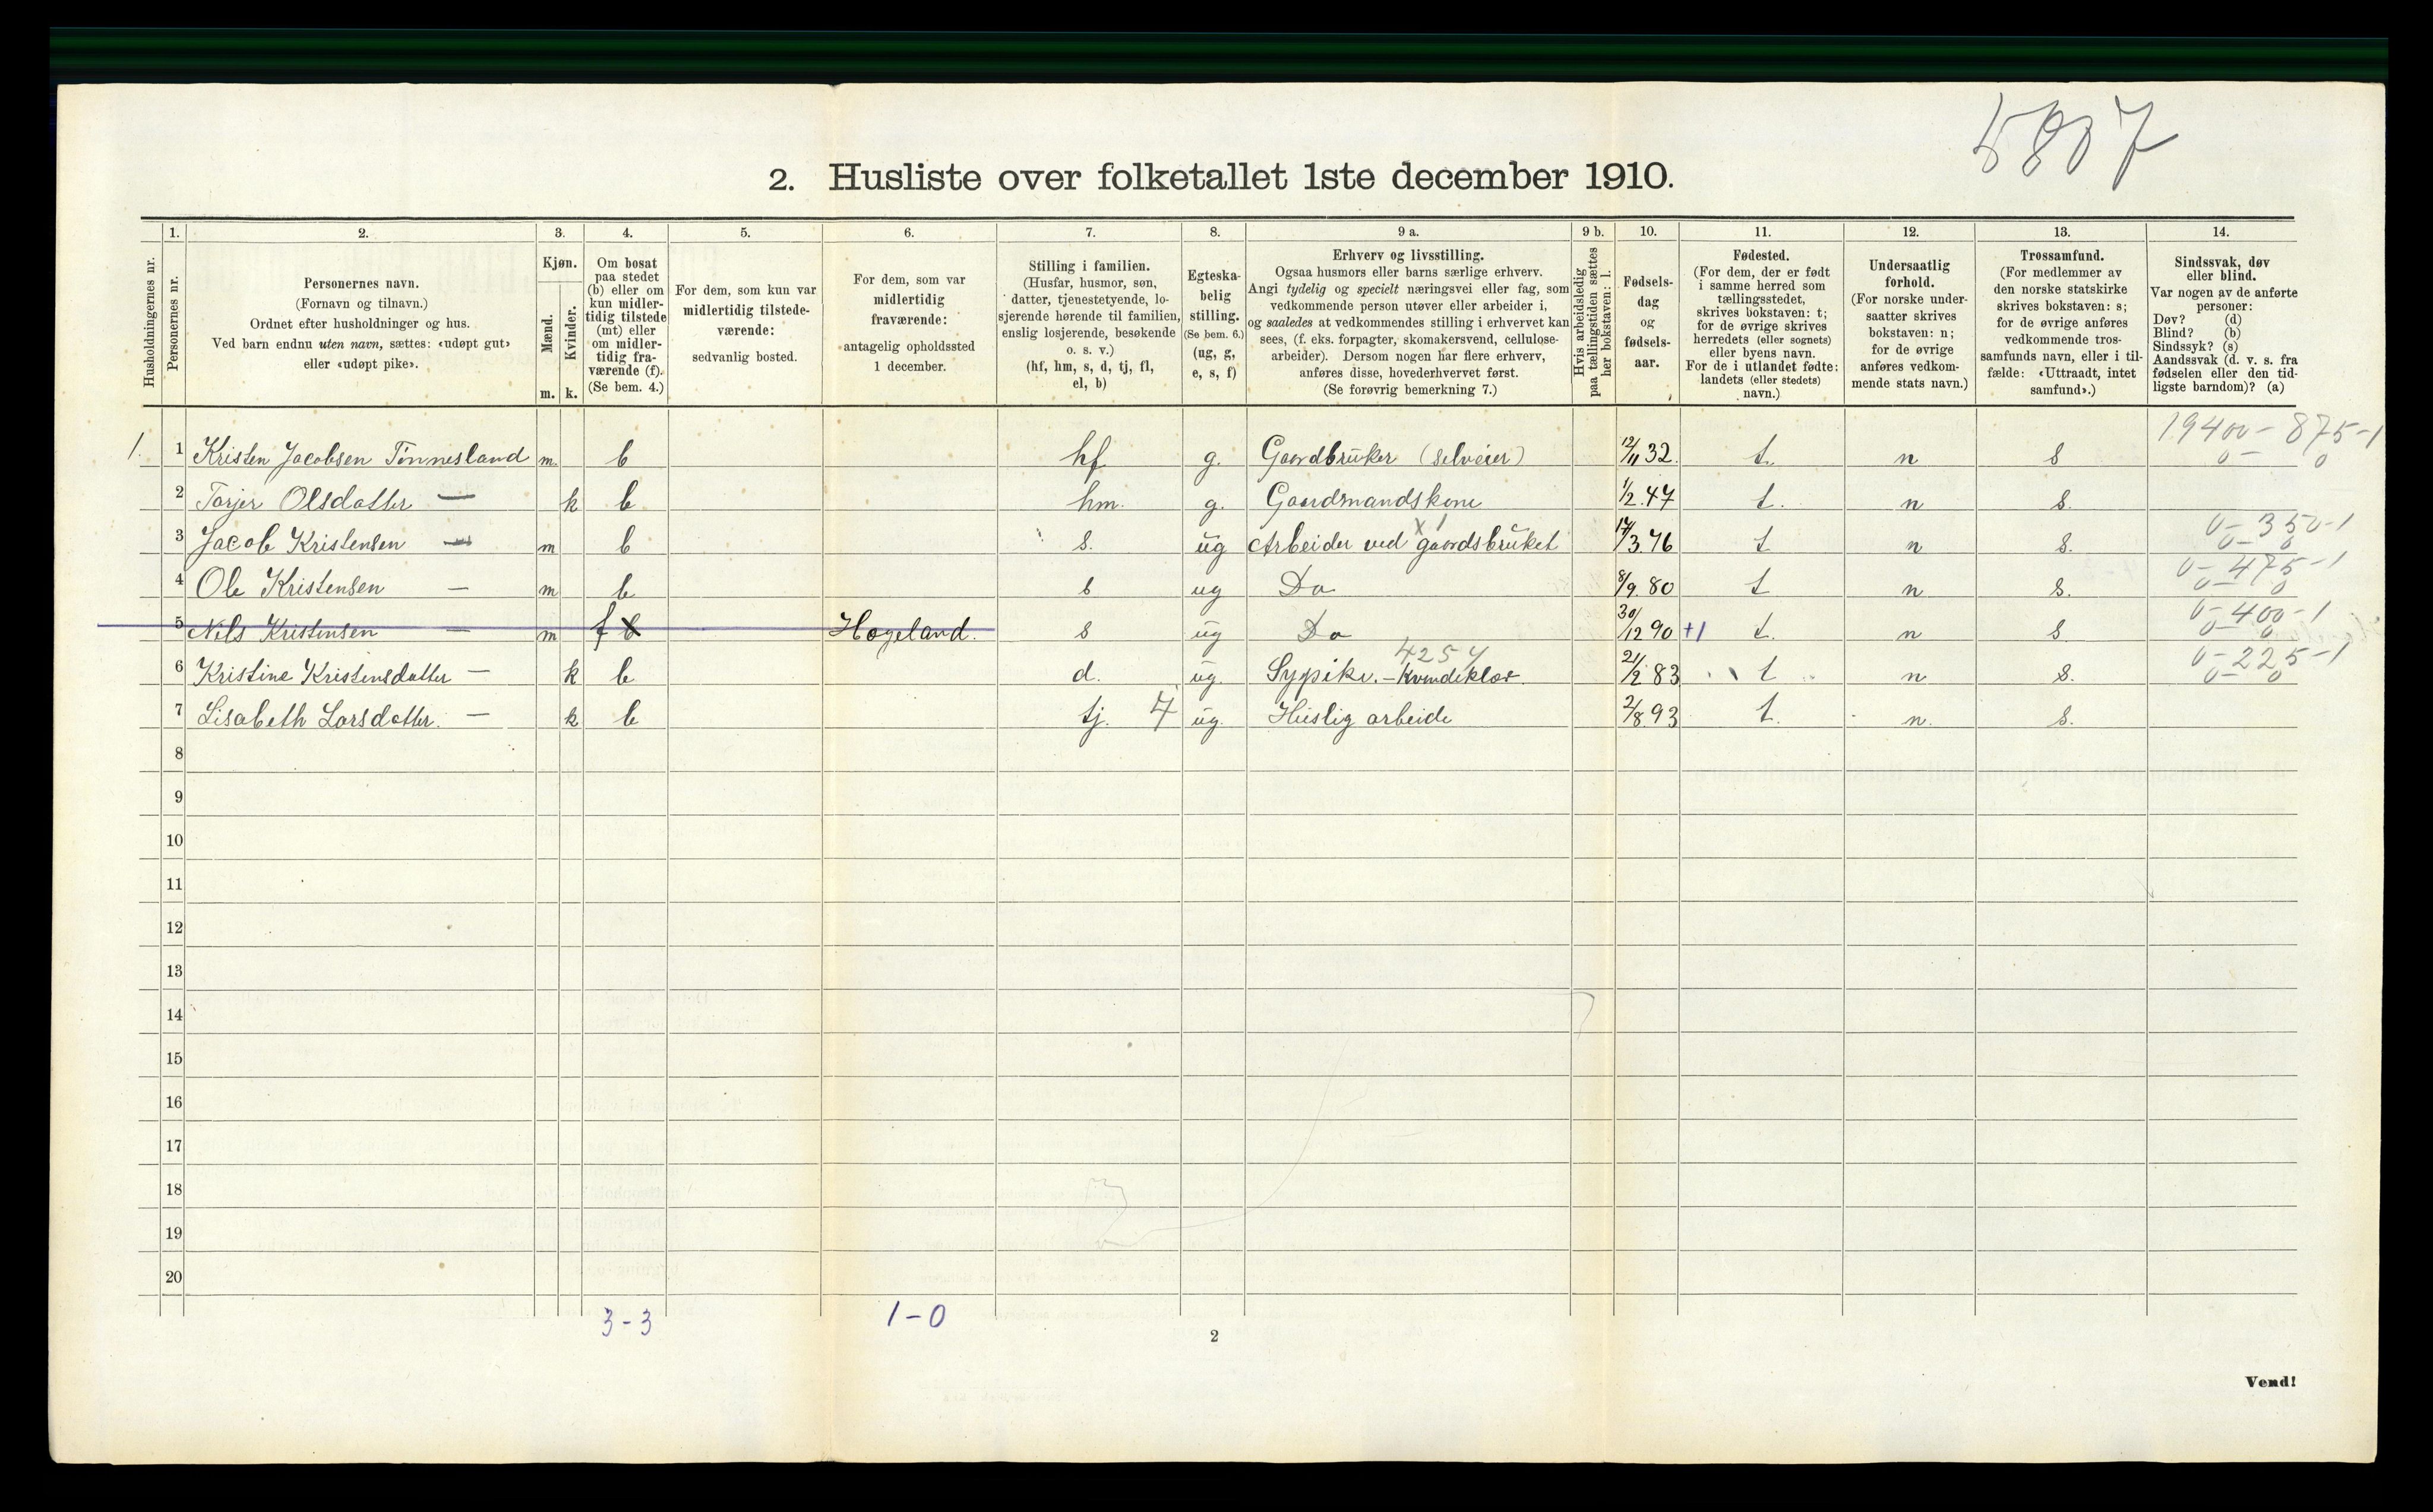 5807
2. Husliste over folketallet 1ste december 1910.
Husholdningernes nr.
1.
Personernes nr.
2.
Personernes navn.
(Fornavn og tilnavn.)
Ordnet efter husholdninger og hus.
Ved barn endnu uten navn, sættes: «udøpt gut»
eller «udøpt pike».
3.
Kjøn.
Mænd.
Kvinder.
m. k.
4.
Om bosat
paa stedet
(b) eller om
kun midler-
tidig tilstede
(mt) eller
om midler-
tidig fra-
værende (f).
(Se bem. 4.)
5.
For dem, som kun var
midlertidig tilstede-
værende:
sedvanlig bosted.
6.
For dem, som var
midlertidig
fraværende:
antagelig opholdssted
1 december.
7.
Stilling i familien.
(Husfar, husmor, søn,
datter, tjenestetyende, lo-
sjerende hørende til familien,
enslig losjerende, besøkende
o. s. v.)
(hf, hm, s, d, tj, fl,
el, b)
8.
Egteska-
belig
stilling.
(Se bem. 6.)
(ug, g,
e, s, f)
9 a.
Erhverv og livsstilling.
Ogsaa husmors eller barns særlige erhverv.
Angi tydelig og specielt næringsvei eller fag, som
vedkommende person utøver eller arbeider i,
og saaledes at vedkommendes stilling i erhvervet kan
sees, (f. eks. forpagter, skomakersvend, cellulose-
arbeider). Dersom nogen har flere erhverv,
anføres disse, hovederhvervet først.
(Se forøvrig bemerkning 7.)
9 b.
Hvis arbeidsledig
paa tællingstiden sættes
her bokstaven: l.
10.
Fødsels-
dag
og
fødsels-
aar.
11.
Fødested.
(For dem, der er født
i samme herred som
tællingsstedet,
skrives bokstaven: t;
for de øvrige skrives
herredets (eller sognets)
eller byens navn.
For de i utlandet fødte:
landets (eller stedets)
navn.)
12.
Undersaatlig
forhold.
(For norske under-
saatter skrives
bokstaven: n;
for de øvrige
anføres vedkom-
mende stats navn.)
13.
Trossamfund.
(For medlemmer av
den norske statskirke
skrives bokstaven: s;
for de øvrige anføres
vedkommende tros-
samfunds navn, eller i til-
fælde: «Uttraadt, intet
samfund».)
14.
Sindssvak, døv
eller blind.
Var nogen av de anførte
personer:
Døv? (d)
Blind? (b)
Sindssyk? (s)
Aandssvak (d. v. s. fra
fødselen eller den tid-
ligste barndom)? (a)
19400 - 875-1
0- 0
1. 1 Kristen Jacobsen Tønnesland m. b hf g. Gaardbruker (selveier) 12/11 32. t. n s
2 Torjer Olsdatter — k b hm. g. Gaardmandskone 1/2.47 t. n s.
3 Jacob Kristensen — m b s. ug Arbeider ved gaardsbruket x1 17/3.76 t n s. 0-350-1 0-0
4 Ole Kristensen — m b s ug Do 8/9.80 t n s. 0-475-1 0-0
5 Nils Kristensen — m f b Hægeland. s ug Do 30/12 90 +1 t. n s 0-400-1 0-0
6 Kristine Kristensdatter — k b d. ug. Sypike. - Kvindeklær. 4254 21/2 83 t n s. 0-225-1 0-0
7 Lisabeth Larsdatter. — k b tj. 4 ug. Huslig arbeide 2/8.93 t. n. s.
8
9
10
11
12
13
14
15
16
17
18
19
20
3-3 1-0
2
Vend!